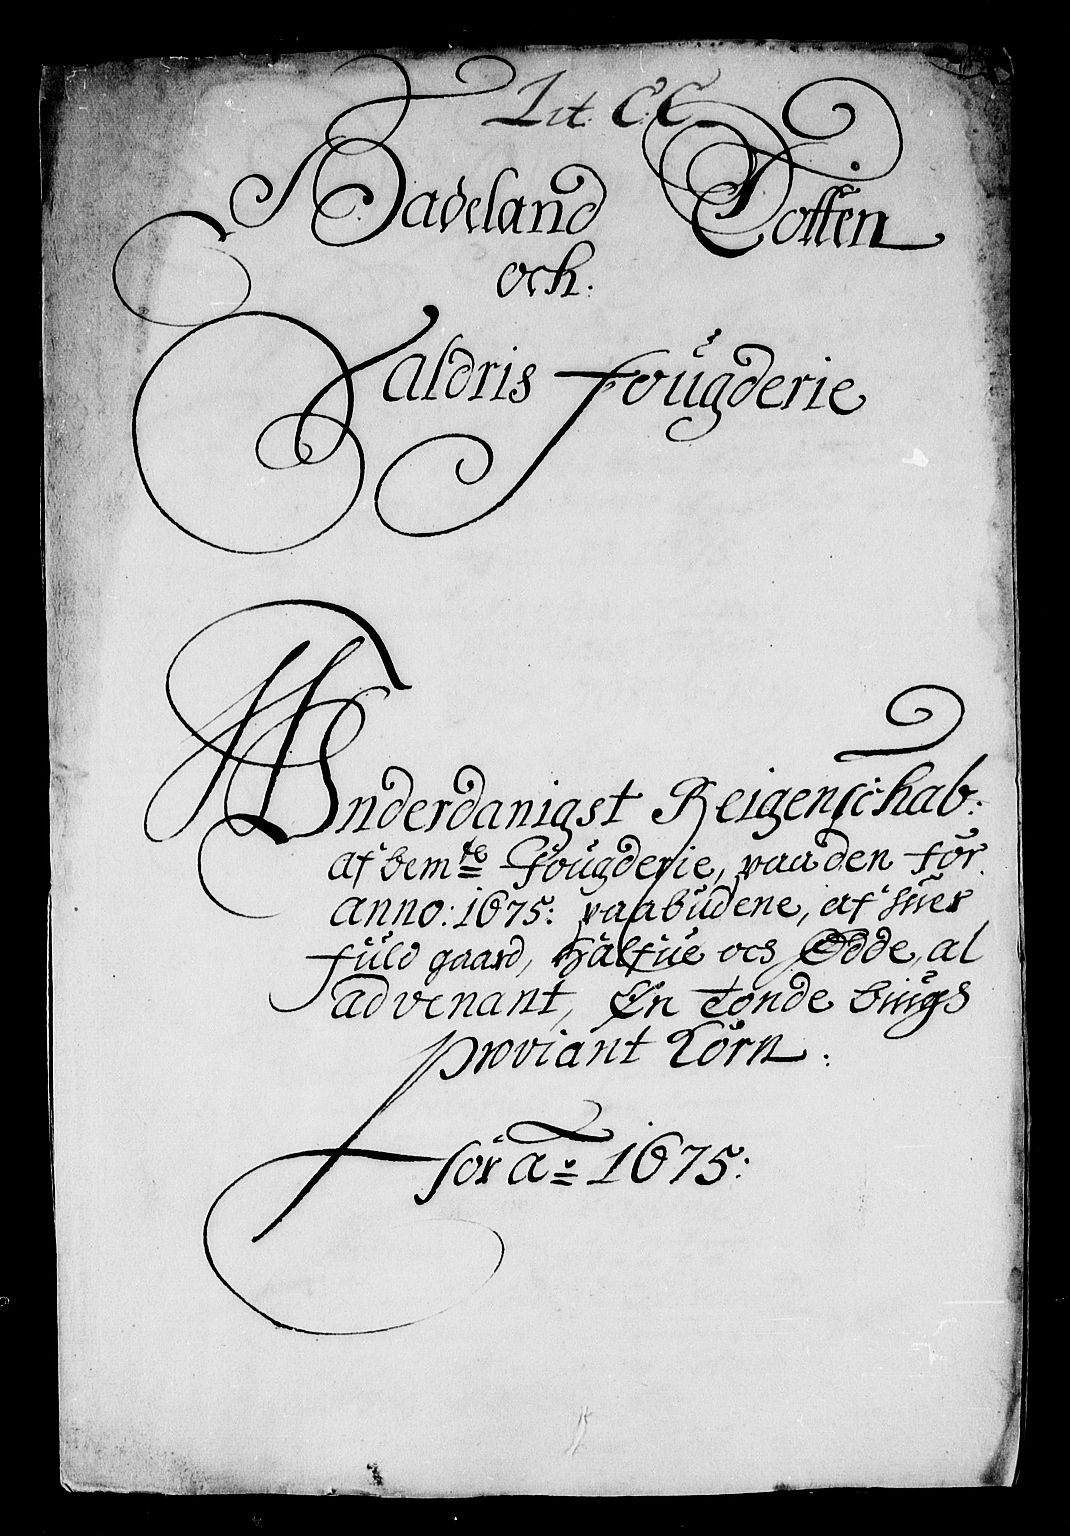 Lit. C:C.
Hadeland Totten
och:
Valdris fougderie
Underdanigst Reigenschab:
af bemte Fougderie, paa den for
anno: 1675: paabudene, af huer
fuld gaard, halfue och Ødde, al
advenant, En tonde biugs
Proviant Korn :
for ao 1675: